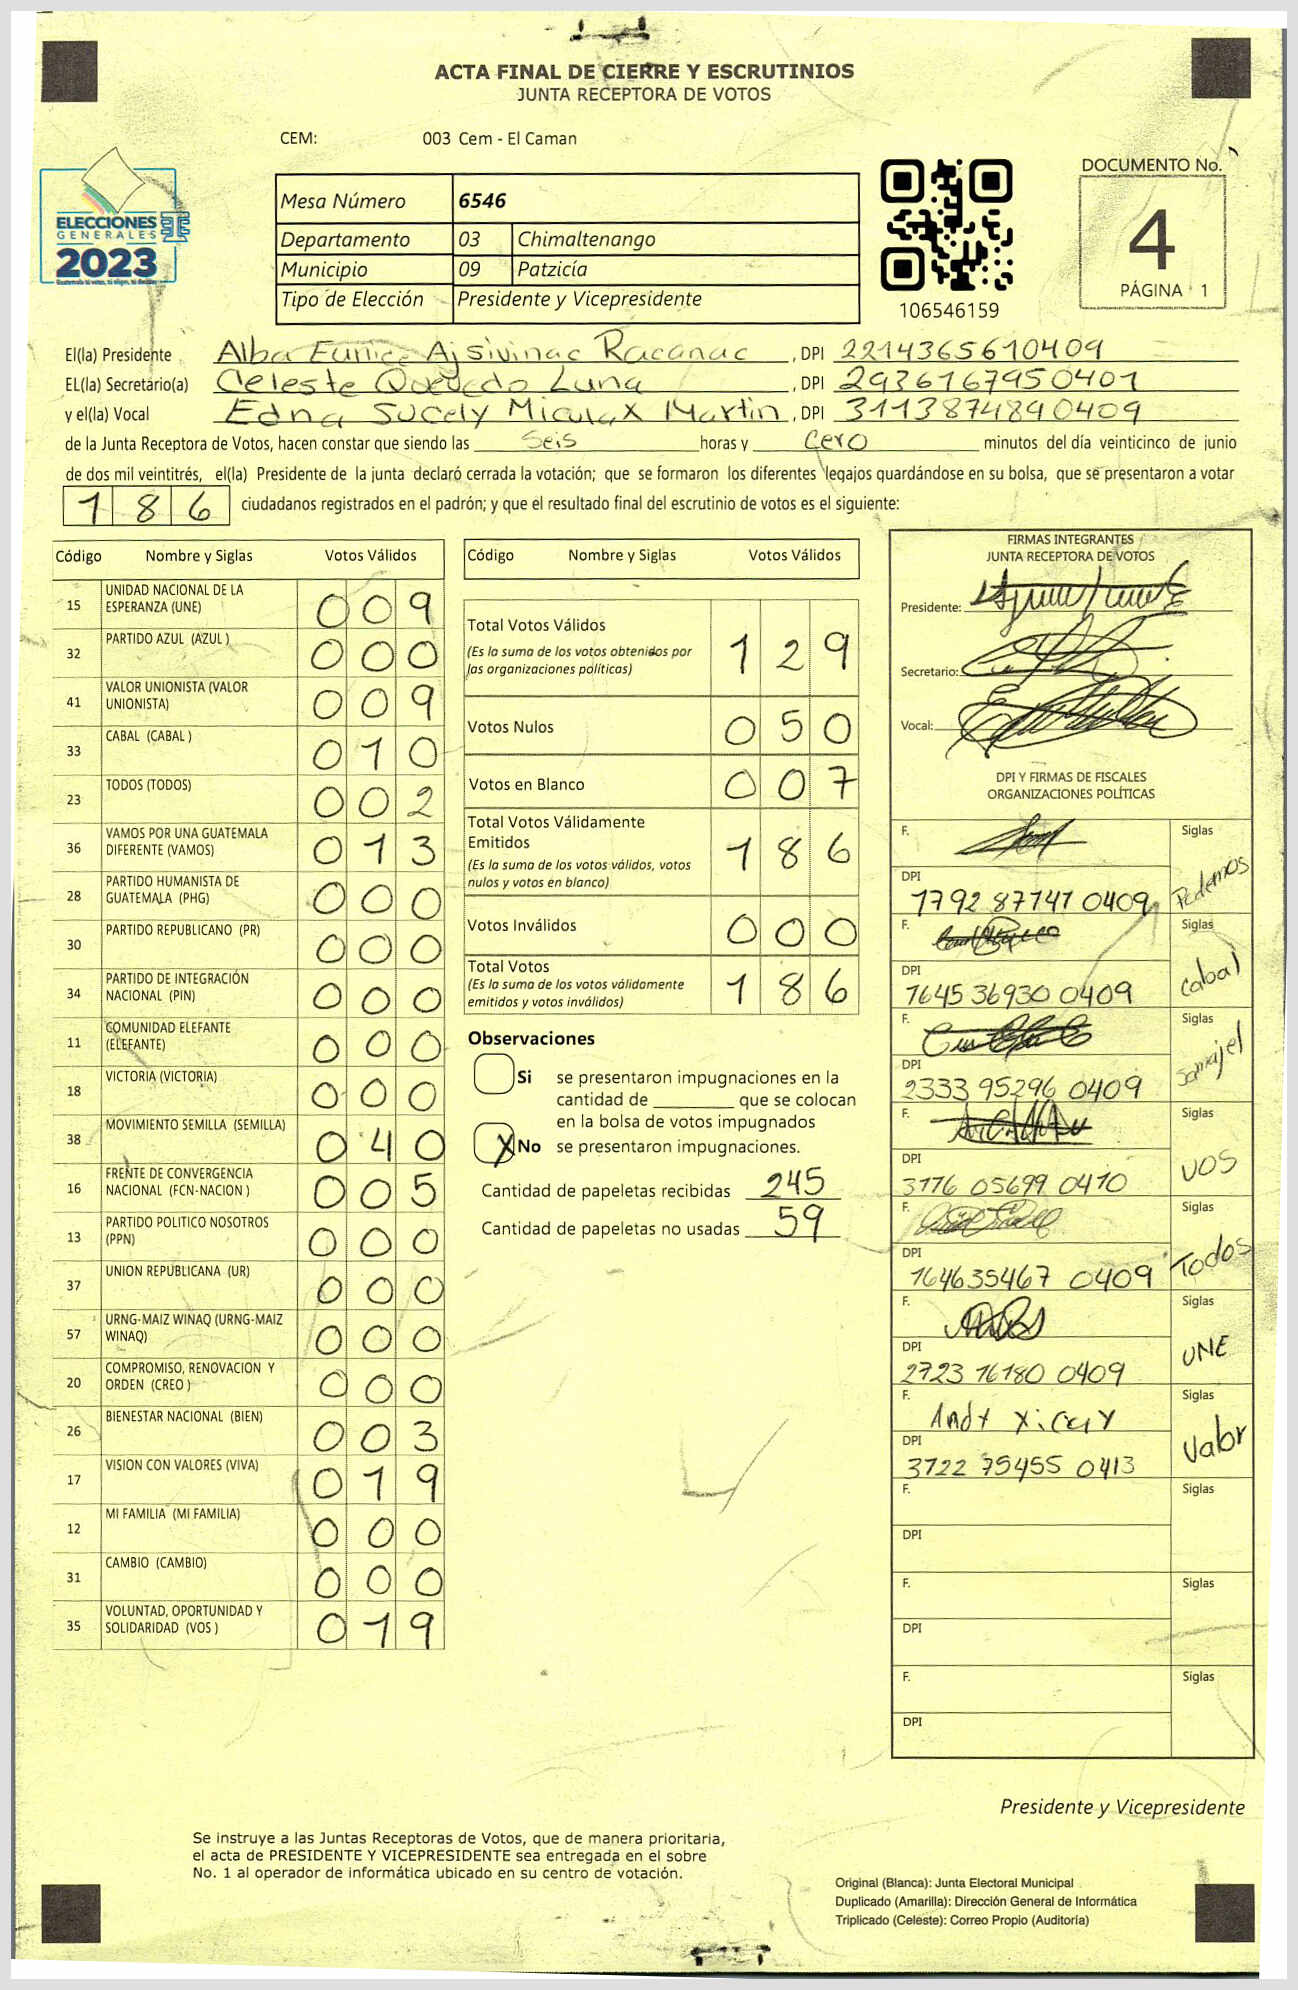 ACTA FINAL DE CIERRE Y ESCRUTINIOS
JUNTA RECEPTORA DE VOTOS
CEM: 003 Cem - El Caman
ELECCIONES
GENERALES
2023
Mesa Número 6546
Departamento 03 Chimaltenango
Municipio 09 Patzicía
Tipo de Elección Presidente y Vicepresidente
106546159
DOCUMENTO No.
4
PÁGINA 1
El(la) Presidente Alba Eunice Ajsivinac Racanac, DPI 2214365610409
EL(la) Secretario(a) Celeste Quevedo Luna, DPI 2936167950401
y el(la) Vocal Edna Sucely Miculax Martin, DPI 3113874890409
de la Junta Receptora de Votos, hacen constar que siendo las seis horas y cero minutos del día veinticinco de junio
de dos mil veintitrés, el(la) Presidente de la junta declaró cerrada la votación; que se formaron los diferentes legajos quardándose en su bolsa, que se presentaron a votar
186 ciudadanos registrados en el padrón; y que el resultado final del escrutinio de votos es el siguiente:
Código Nombre y Siglas Votos Válidos
15 UNIDAD NACIONAL DE LA ESPERANZA (UNE) 009
32 PARTIDO AZUL (AZUL ) 000
41 VALOR UNIONISTA (VALOR UNIONISTA) 009
33 CABAL (CABAL ) 010
23 TODOS (TODOS) 002
36 VAMOS POR UNA GUATEMALA DIFERENTE (VAMOS) 013
28 PARTIDO HUMANISTA DE GUATEMALA (PHG) 000
30 PARTIDO REPUBLICANO (PR) 000
34 PARTIDO DE INTEGRACIÓN NACIONAL (PIN) 000
11 COMUNIDAD ELEFANTE (ELEFANTE) 000
18 VICTORIA (VICTORIA) 000
38 MOVIMIENTO SEMILLA (SEMILLA) 040
16 FRENTE DE CONVERGENCIA NACIONAL (FCN-NACION ) 005
13 PARTIDO POLITICO NOSOTROS (PPN) 000
37 UNION REPUBLICANA (UR) 000
57 URNG-MAIZ WINAQ (URNG-MAIZ WINAQ) 000
20 COMPROMISO, RENOVACION Y ORDEN (CREO ) 000
26 BIENESTAR NACIONAL (BIEN) 003
17 VISION CON VALORES (VIVA) 019
12 MI FAMILIA (MI FAMILIA) 000
31 CAMBIO (CAMBIO) 000
35 VOLUNTAD, OPORTUNIDAD Y SOLIDARIDAD (VOS ) 019
Código Nombre y Siglas Votos Válidos
Total Votos Válidos 129
(Es la suma de los votos obtenidos por
las organizaciones políticas)
Votos Nulos 050
Votos en Blanco 007
Total Votos Válidamente
Emitidos 186
(Es la suma de los votos válidos, votos
nulos y votos en blanco)
Votos Inválidos 000
Total Votos 186
(Es la suma de los votos válidamente
emitidos y votos inválidos)
Observaciones
Si se presentaron impugnaciones en la
cantidad de ________ que se colocan
en la bolsa de votos impugnados
X No se presentaron impugnaciones.
Cantidad de papeletas recibidas 245
Cantidad de papeletas no usadas 59
FIRMAS INTEGRANTES
JUNTA RECEPTORA DE VOTOS
Presidente:
Secretario:
Vocal:
DPI Y FIRMAS DE FISCALES
ORGANIZACIONES POLÍTICAS
F. Siglas Podemos
DPI 1792 87747 0409
F. Siglas Cabal
DPI 1645 36930 0409
F. Siglas Samajel
DPI 2333 95296 0409
F. Siglas VOS
DPI 3176 05699 0410
F. Siglas Todos
DPI 164635467 0409
F. Siglas UNE
DPI 2723 16180 0409
F. Andy Xicay Siglas Valor
DPI 3722 75455 0413
F. Siglas
DPI
F. Siglas
DPI
F. Siglas
DPI
Presidente y Vicepresidente
Se instruye a las Juntas Receptoras de Votos, que de manera prioritaria,
el acta de PRESIDENTE Y VICEPRESIDENTE sea entregada en el sobre
No. 1 al operador de informática ubicado en su centro de votación.
Original (Blanca): Junta Electoral Municipal
Duplicado (Amarilla): Dirección General de Informática
Triplicado (Celeste): Correo Propio (Auditoría)